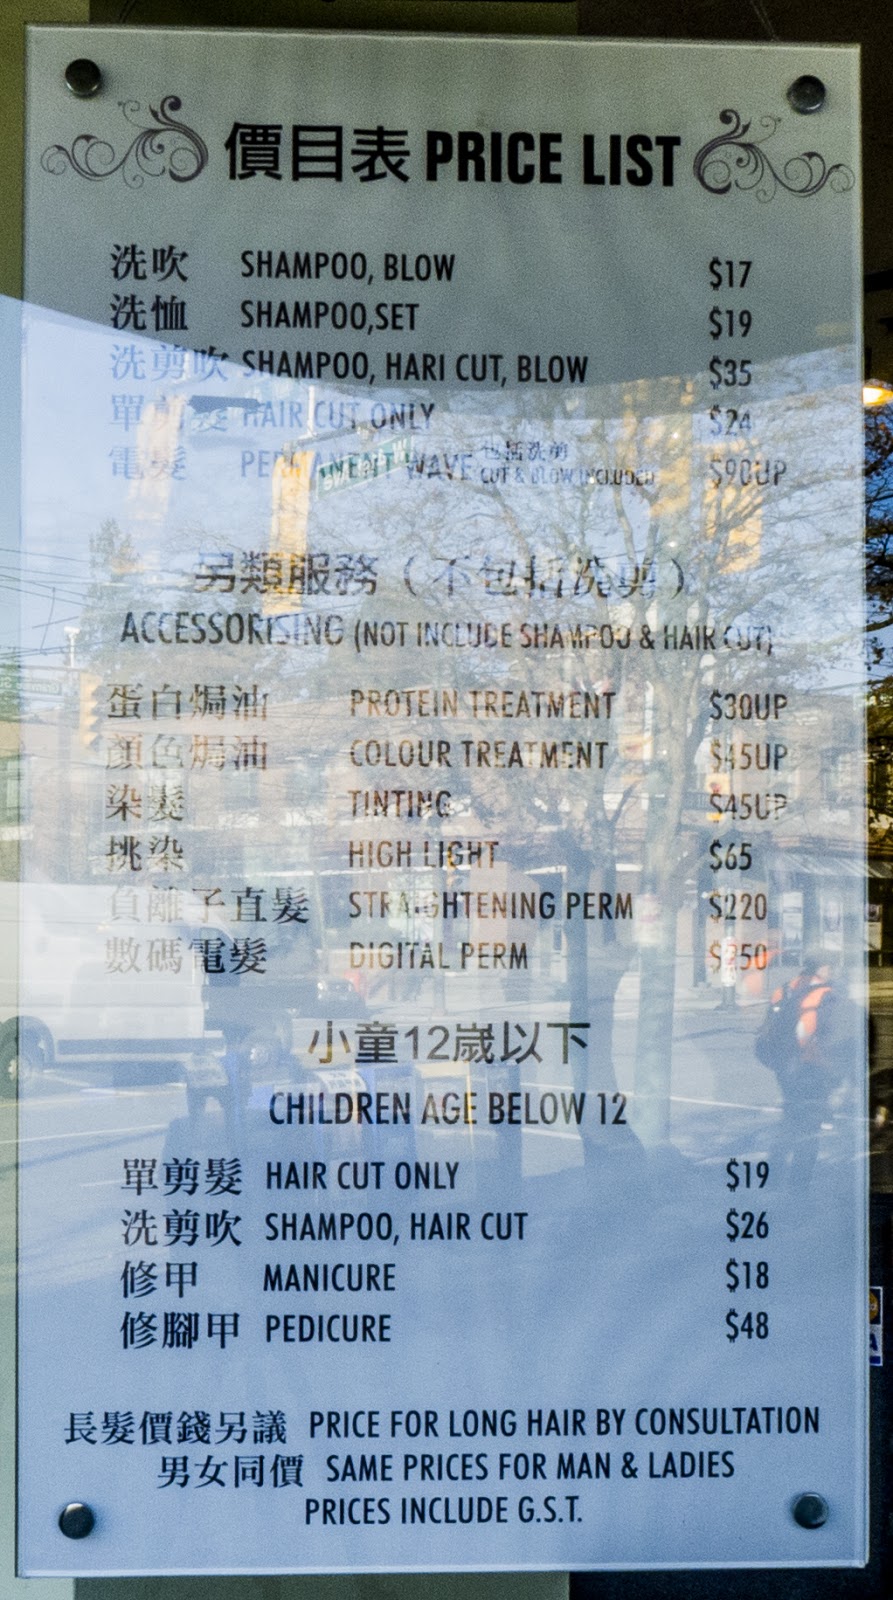 價目表 PRICE LIST
洗吹 SHAMPOO, BLOW $17
洗恤 SHAMPOO,SET $19
洗剪吹 SHAMPOO, HARI CUT, BLOW $35
單剪髮 HAIR CUT ONLY $24
電髮 PERMANENT WAVE 包括洗剪 CUT & BLOW INCLUDED $90UP
另類服務（不包括洗剪）
ACCESSORISING (NOT INCLUDE SHAMPOO & HAIR CUT)
蛋白焗油 PROTEIN TREATMENT $30UP
顏色焗油 COLOUR TREATMENT $45UP
染髮 TINTING $45UP
挑染 HIGH LIGHT $65
負離子直髮 STRAIGHTENING PERM $220
數碼電髮 DIGITAL PERM $250
小童12歲以下
CHILDREN AGE BELOW 12
單剪髮 HAIR CUT ONLY $19
洗剪吹 SHAMPOO, HAIR CUT $26
修甲 MANICURE $18
修腳甲 PEDICURE $48
長髮價錢另議 PRICE FOR LONG HAIR BY CONSULTATION
男女同價 SAME PRICES FOR MAN & LADIES
PRICES INCLUDE G.S.T.